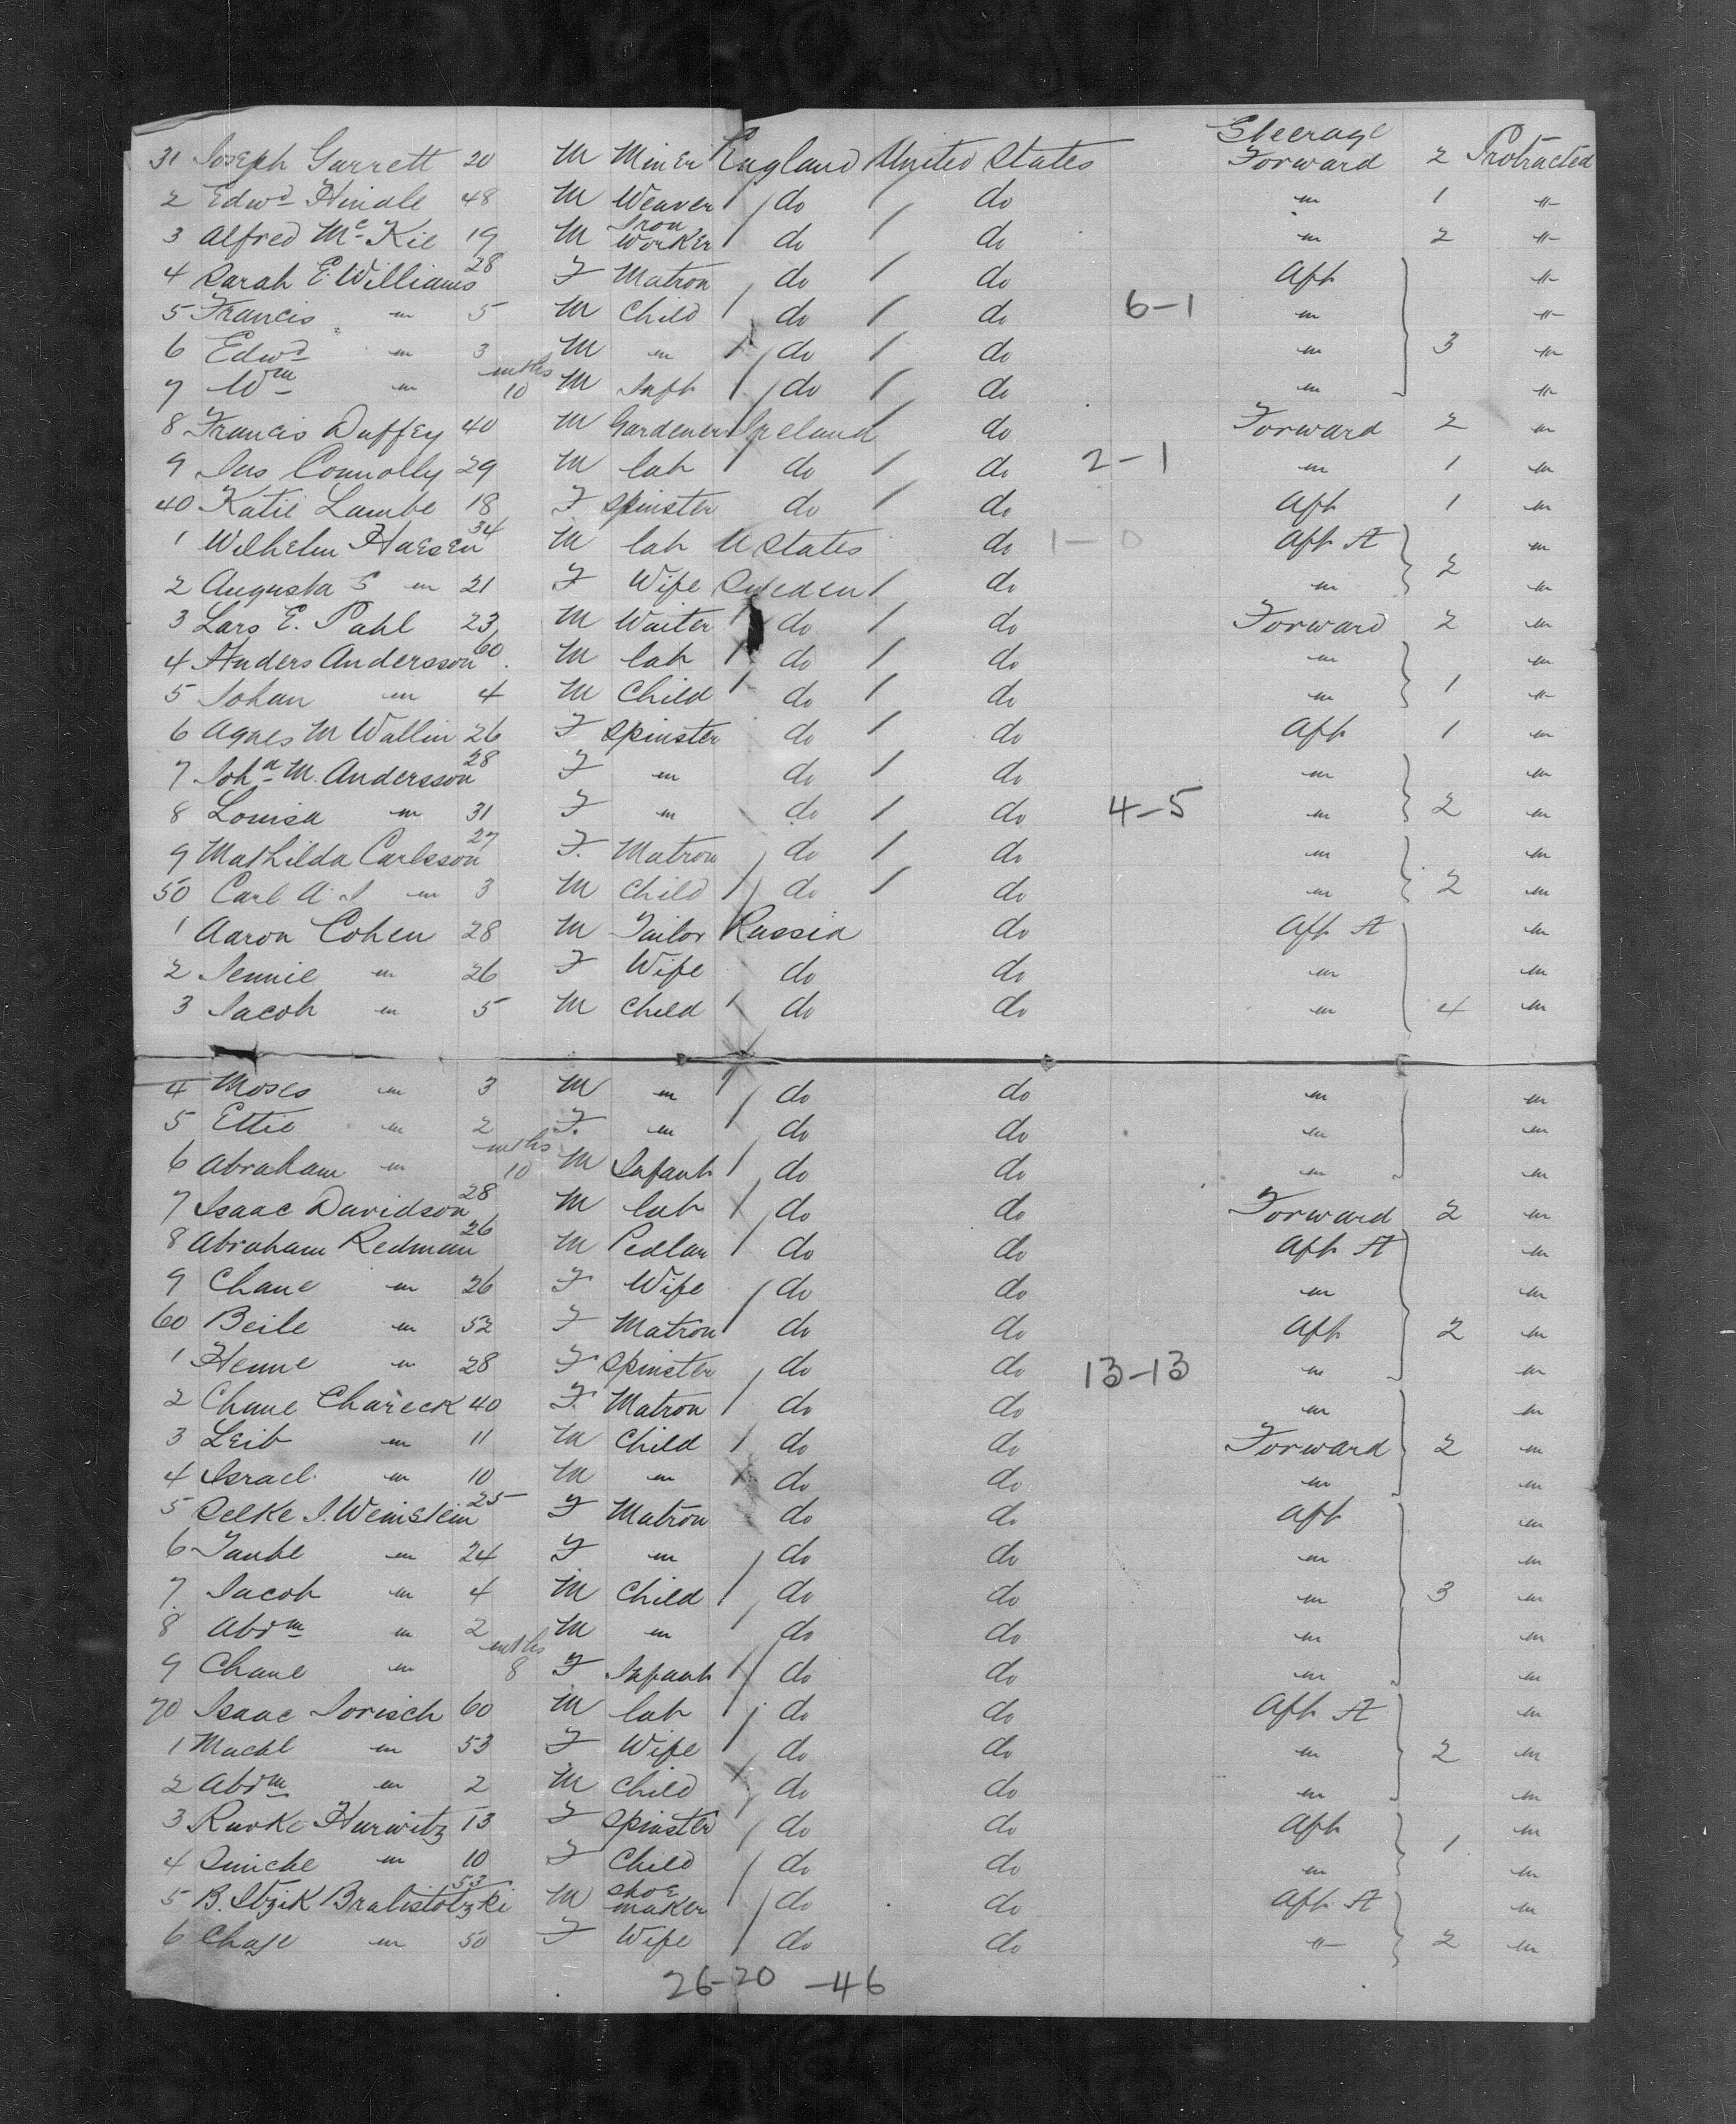 Steerage
31 Joseph Garrett 20 M Miner England United States Forward 2 Protracted
2 Edwd Hindle 48 M Weaver do do " 1 "
3 Alfred McKie 19 M Iron Worker do do " 2 "
4 Sarah E. Williams 28 F Matron do do Aft "
5 Francis " 5 M Child do do 6-1 " "
6 Edwd " 3 M " do do " 3 "
7 Wm " mths 10 M Inft do do " "
8 Francis Duffey 40 M Gardener Ireland do Forward 2 "
9 Jas Connolly 29 M lab do do 2-1 " 1 "
40 Katie Lambe 18 F Spinster do do Aft 1 "
1 Wilhelm Haesen 34 M lab U States do 1-0 Aft St "
2 Augusta S " 21 F Wife Sweden do " 2 "
3 Lars E. Pahl 23 M Waiter do do Forward 2 "
4 Anders Andersson 60 M lab do do " "
5 Johan " 4 M Child do do " 1 "
6 Agnes M Wallin 26 F Spinster do do Aft 1 "
7 Joha M. Andersson 28 F " do do " "
8 Louisa " 31 F " do do 4-5 " 2 "
9 Mathilda Carlsson 27 F. Matron do do " "
50 Carl A. J " 3 M Child do do " 2 "
1 Aaron Cohen 28 M Tailor Russia do Aft St "
2 Jennie " 26 F Wife do do " "
3 Jacob " 5 M Child do do " 4 "
4 Moses " 3 M " do do " "
5 Ettie " 2 F. " do do " "
6 Abraham " mths 10 M Infant do do " "
7 Isaac Davidson 28 M lab do do Forward 2 "
8 Abraham Redman 26 M Pedlar do do Aft St "
9 Chane " 26 F Wife do do " "
60 Beile " 52 F Matron do do Aft 2 "
1 Henne " 28 F Spinster do do 13-13 " "
2 Chane Chareck 40 F. Matron do do " "
3 Leib " 11 M Child do do Forward 2 "
4 Israel " 10 M " do do " "
5 Selke I. Weinstein 25 F Matron do do Aft "
6 Taube " 24 F " do do " "
7. Jacob " 4 M Child do do " 3 "
8 Abrm " 2 M " do do " "
9 Chane " mths 8 F Infant do do " "
70 Isaac Jorisch 60 M lab do do Aft St "
1 Machl " 53 F Wife do do " 2 "
2 Abrm " 2 M Child do do " "
3 Hurwitz 13 F Spinster do do Aft "
4 " 10 F Child do do " 1 "
5 B. Itzik 53 M Shoe maker do do Aft St "
6 Chaje " 50 F Wife do do " 2 "
26-20 -46